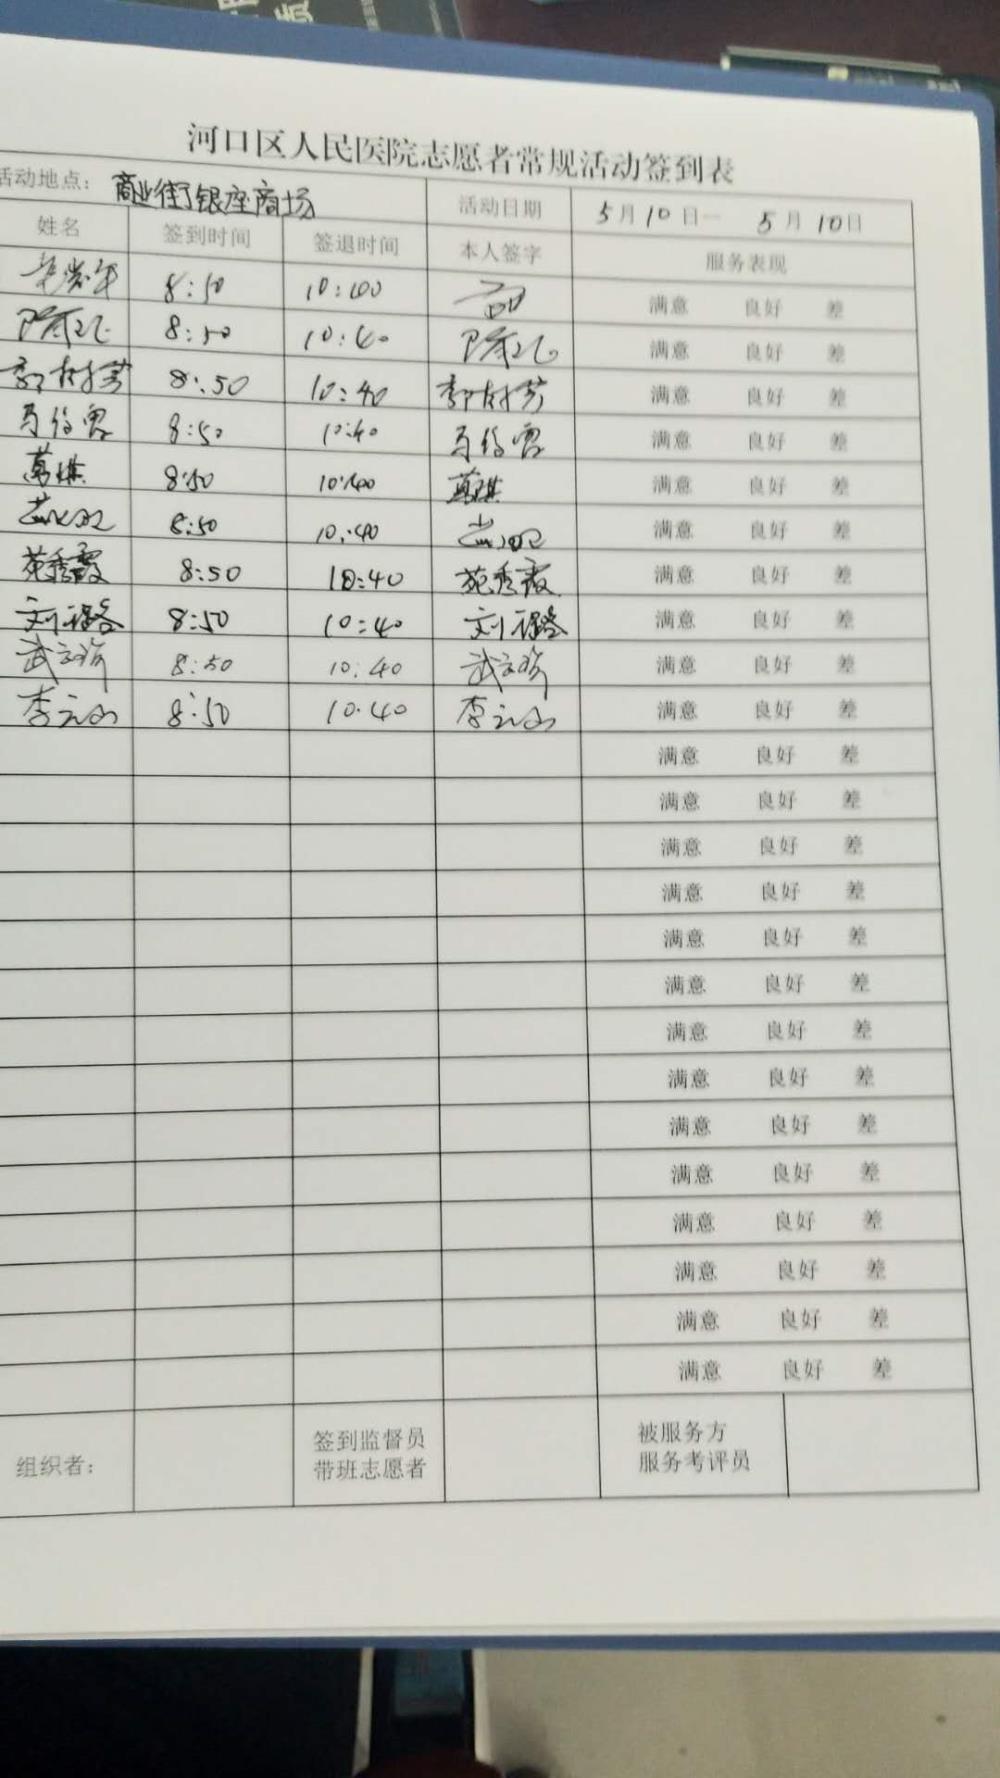 河口区人民医院志愿者常规活动签到表
活动地点: 商业街银座商场 活动日期 5月10日一 5月10日
姓名 签到时间 签退时间 本人签字 服务表现
8:50 满意 良好 差
8:50 10:40 满意 良好 差
郭树芳 8:50 10:40 郭树芳 满意 良好 差
8:50 10:40 满意 良好 差
葛琪 8:50 葛琪 满意 良好 差
8:50 10:40 满意 良好 差
苑秀霞 8:50 10:40 苑秀霞 满意 良好 差
刘 8:50 10:40 刘 满意 良好 差
武 8:50 10:40 武 满意 良好 差
李 8:50 10:40 李 满意 良好 差
满意 良好 差
满意 良好 差
满意 良好 差
满意 良好 差
满意 良好 差
满意 良好 差
满意 良好 差
满意 良好 差
满意 良好 差
满意 良好 差
满意 良好 差
满意 良好 差
满意 良好 差
满意 良好 差
组织者: 签到监督员 被服务方
带班志愿者 服务考评员